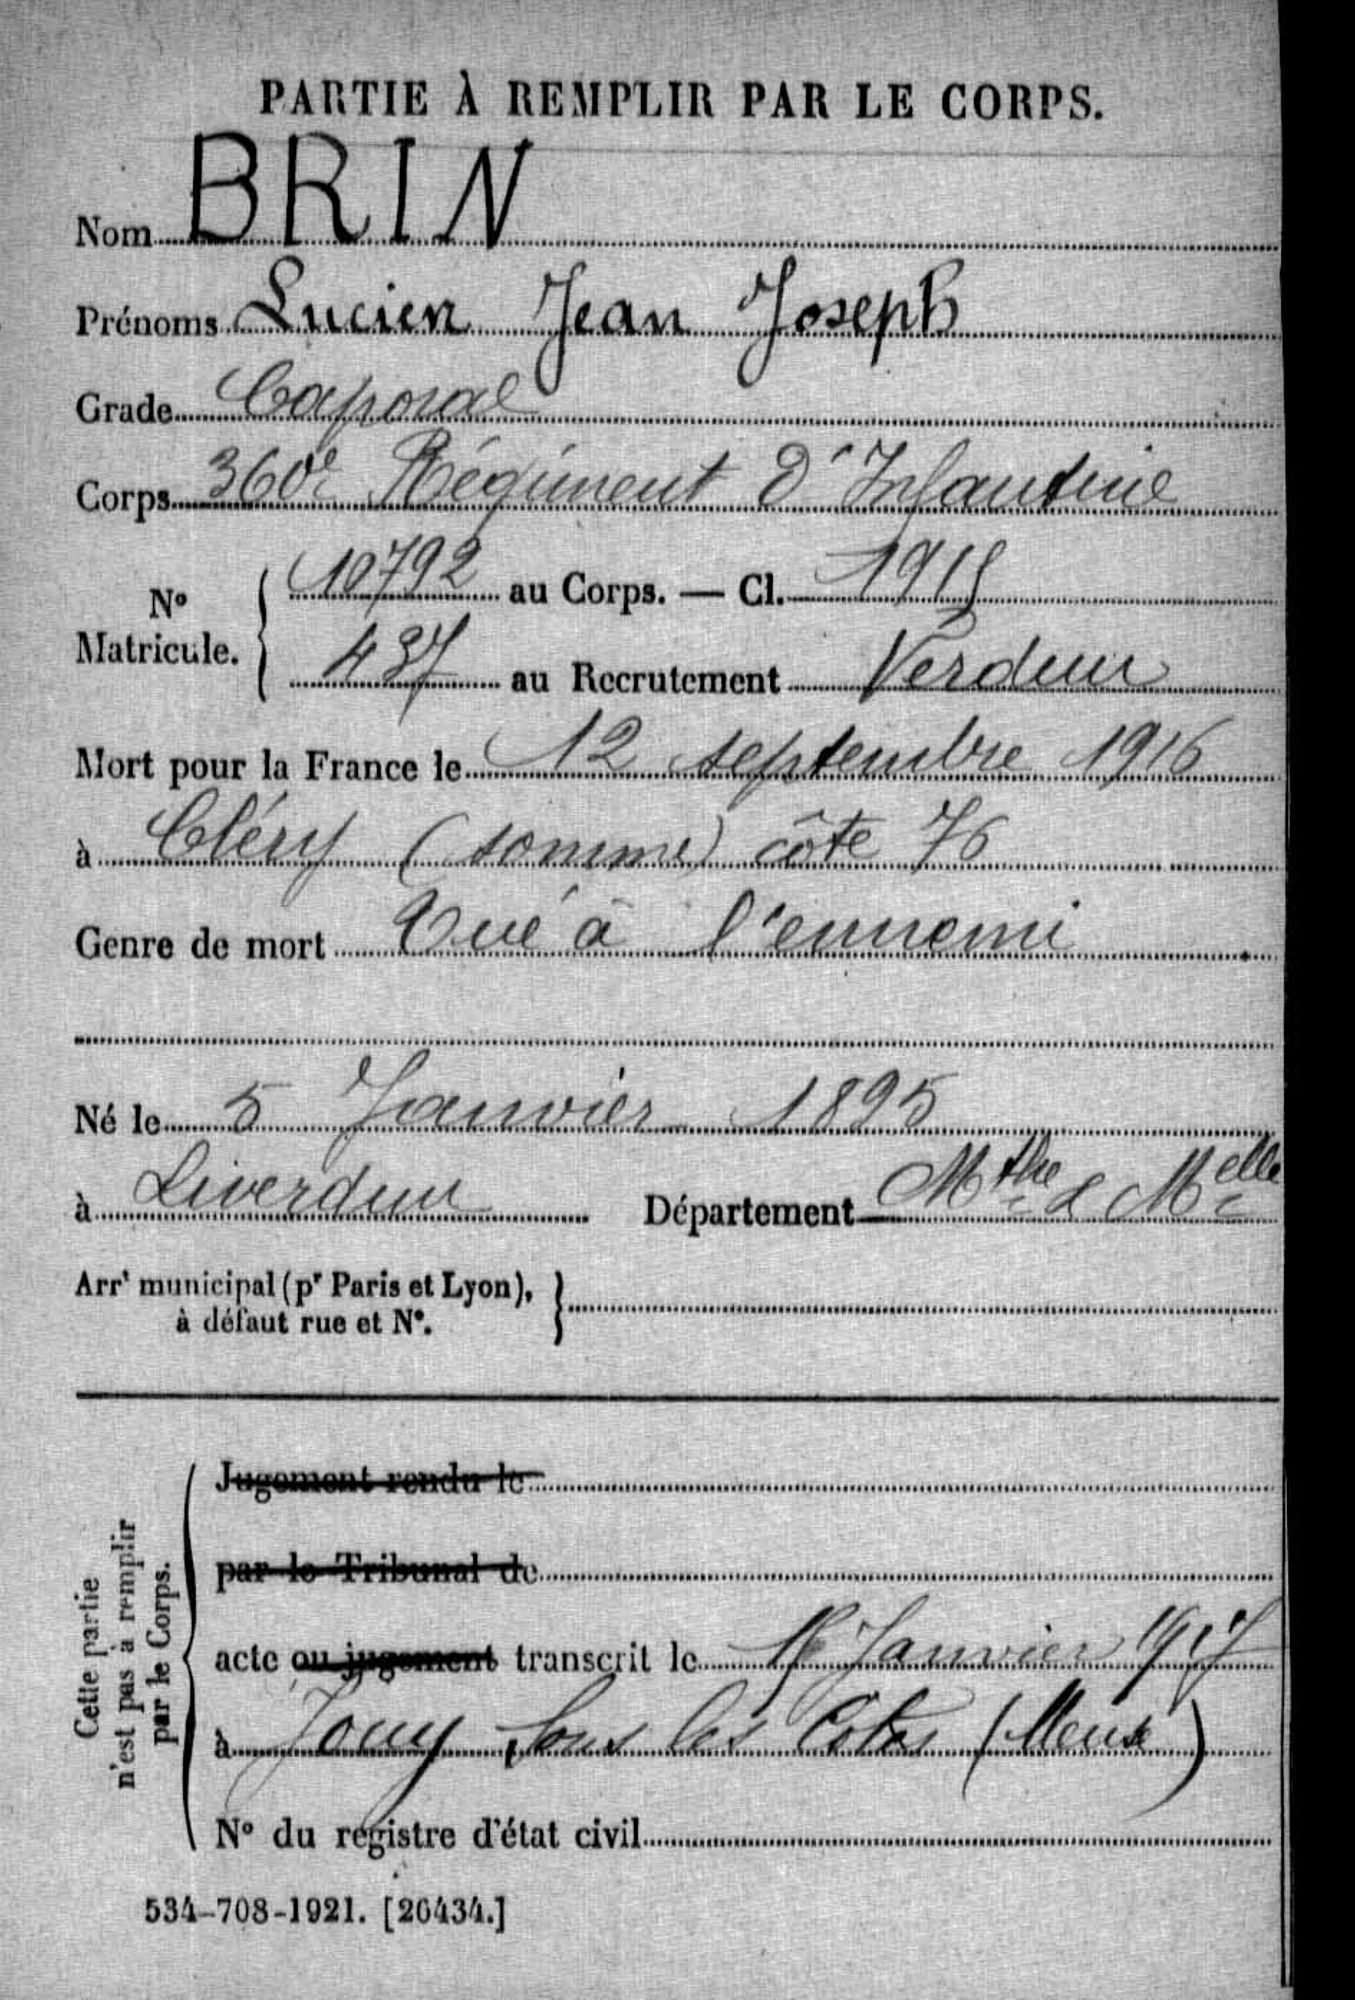 PARTIE À REMPLIR PAR LE CORPS.
Nom BRIN
Prénoms Lucien Jean Joseph
Grade Caporal
Corps 360e Régiment d'Infanterie
N° Matricule. 10792 au Corps. — Cl. 1915
437 au Recrutement Verdun
Mort pour la France le 12 septembre 1916
à Cléry (somme) côte 76
Genre de mort Tué à l'ennemi
Né le 5 Janvier 1895
à Liverdun Département Mthe & Melle
Arrt municipal (pr Paris et Lyon),
à défaut rue et N°.
Cette partie
n'est pas à remplir
par le Corps.
Jugement rendu le
par le Tribunal de
acte ou jugement transcrit le Janvier 1917
à Jouy sous les Côtes (Meuse)
N° du registre d'état civil
534-708-1921. [26434.]